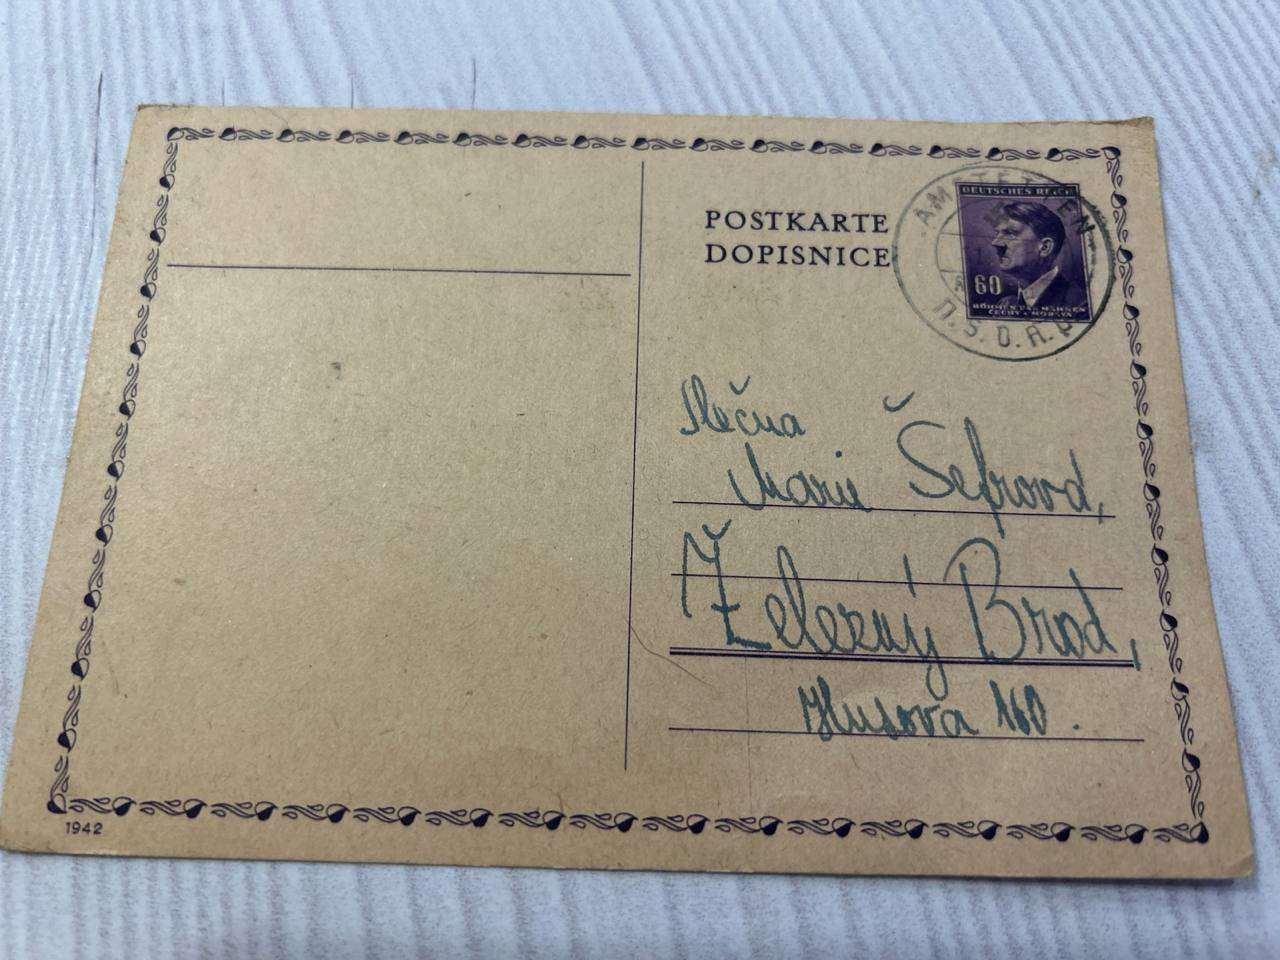 POSTKARTE
DOPISNICE
DEUTSCHES REICH
60
BÖHMEN UND MÄHREN
ČECHY A MORAVA
AMSTETTEN
N.S.D.A.P
Slečna
Marie Šefrová,
Železný Brod,
Husova 160.
1942